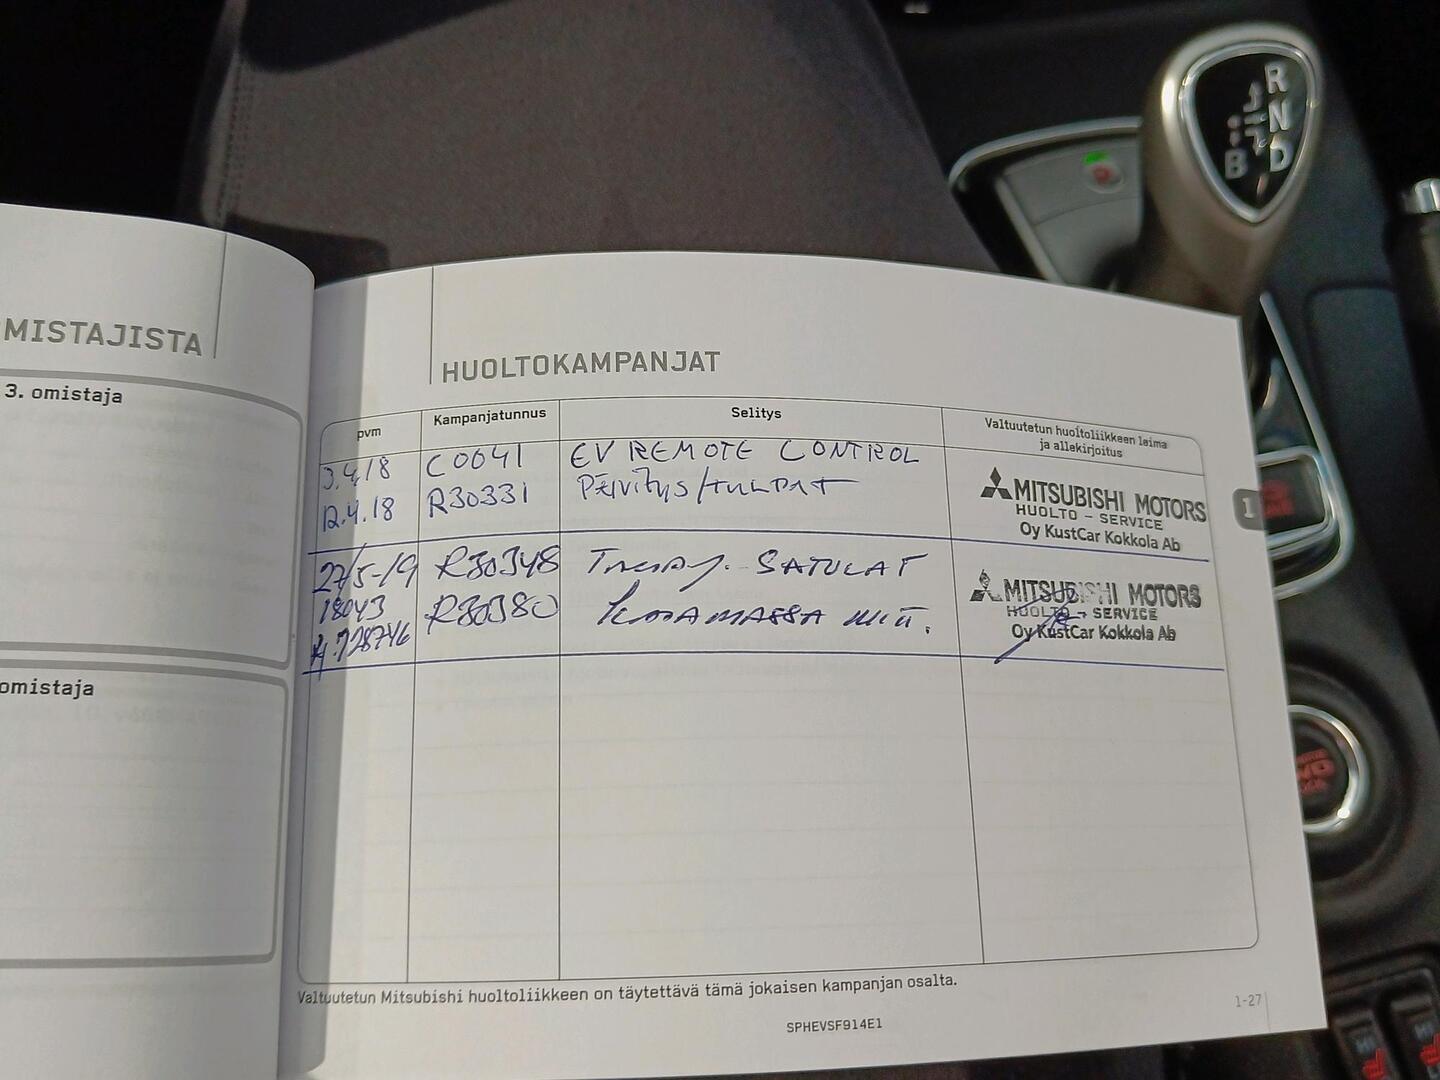 MISTAJISTA
3. omistaja
omistaja
HUOLTOKAMPANJAT
pvm Kampanjatunnus Selitys Valtuutetun huoltoliikkeen leima
ja allekirjoitus
3.4.18 C0041 EV REMOTE CONTROL
12.4.18 R30331 PÄIVITYS/TULPAT
MITSUBISHI MOTORS
HUOLTO - SERVICE
Oy KustCar Kokkola Ab
27/5-19 R30348 SATULAT
18043 R30380
728746
MITSUBISHI MOTORS
HUOLTO - SERVICE
Oy KustCar Kokkola Ab
Valtuutetun Mitsubishi huoltoliikkeen on täytettävä tämä jokaisen kampanjan osalta.
1-27
SPHEVSF914E1
1
R
N
B D